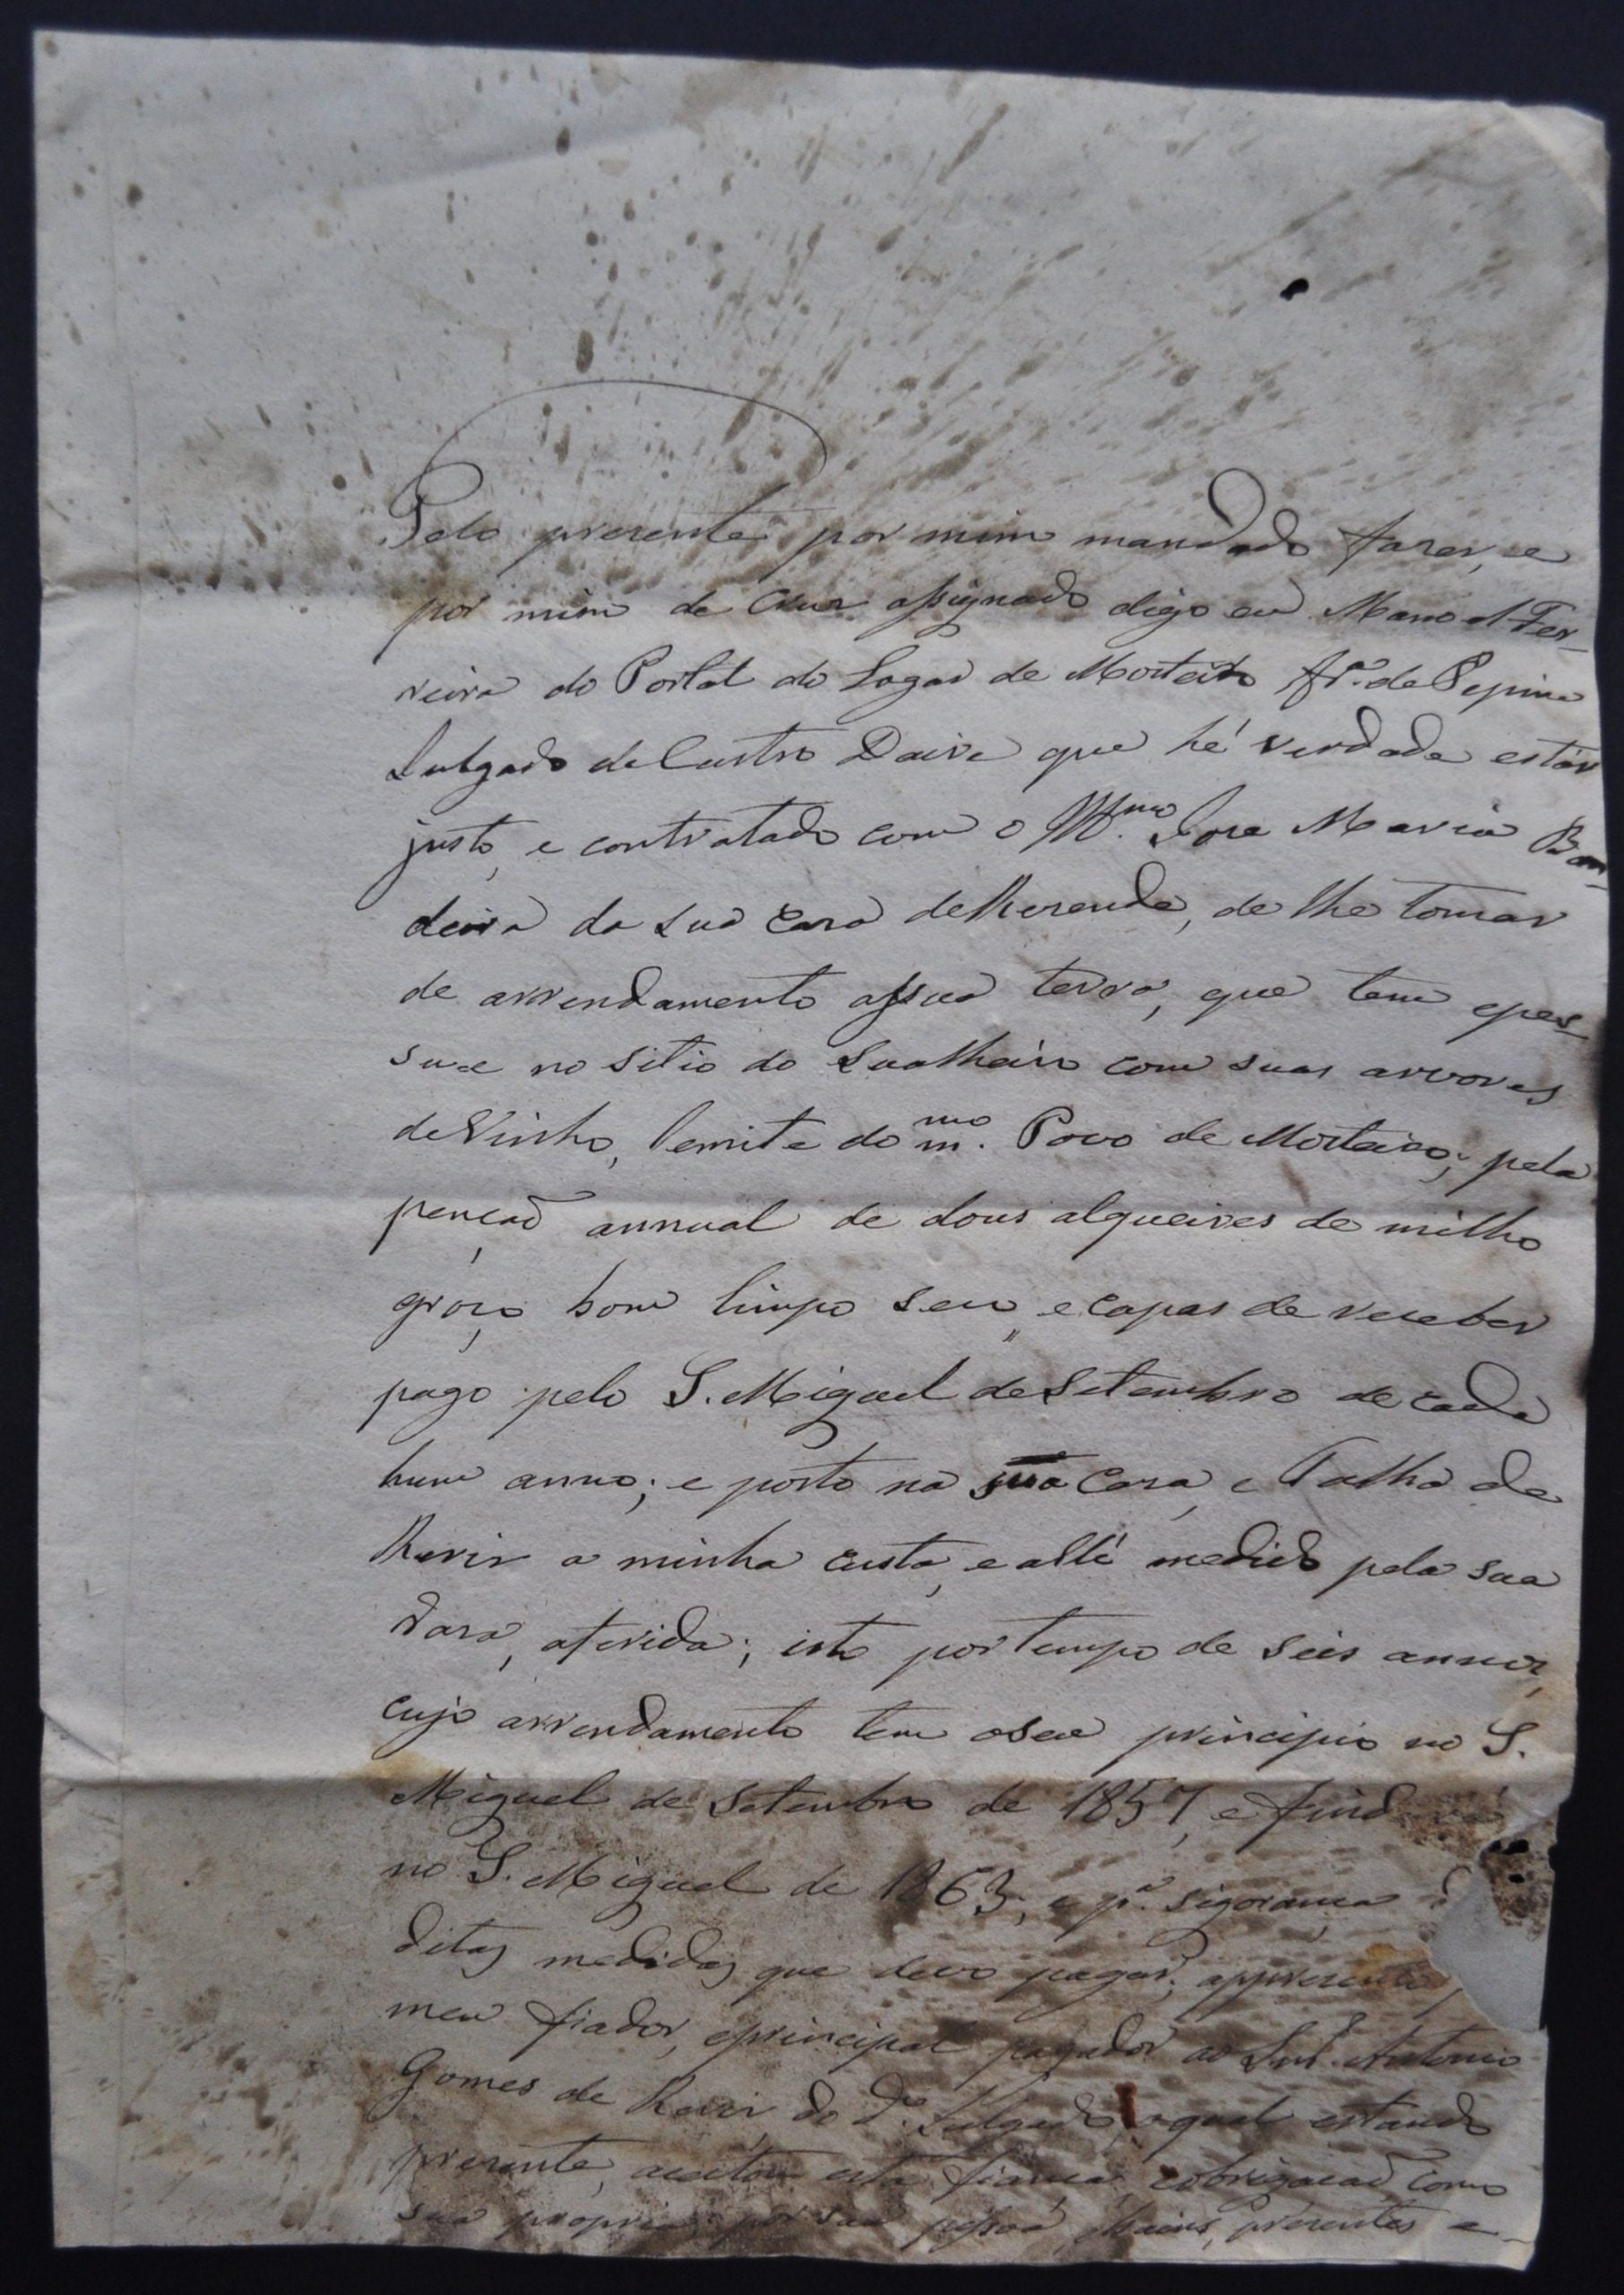 Pelo prezente por mim mandado fazer, e
por mim de Cruz assignado digo eu Manoel Fer-
reira do Portal do Lugar de Mosteiro fr.ª de Pepim
Julgado de Castro Daire que hé verdade estár
justo, e contratado com o Ill.mo Jose Maria Ban-
deira da sua Caza de Rezende, de lhe tomar
de arrendamento assua terra, que tem epes-
sue no sitio do Soalheiro com suas arvores
de Vinho, lemite do m.mo Povo de Mosteiro; pela
penção annual de dous alqueires de milho
groço bom limpo seco, e capas de receber
pago pelo S. Miguel de Setembro de cada
hum anno; e posto na sua Caza, e Tulha de
Reriz a minha custa, e alli medido pela sua
raza, aferida; isto por tempo de seis annos,
cujo arrendamento tem oseu principio no S.
Miguel de Setembro de 1857, e findará
no S. Miguel de 1863; e p.ª sigorança
ditas medidas que devo pagar; apprezento
meu fiador, eprincipal pagador ao Snr. Antonio
Gomes de Reriz, do d.º Julgado, oqual estando
prezente, aceitou esta fiança, eobrigação como
sua propria por sua pessoa, ebeins, prezentes e